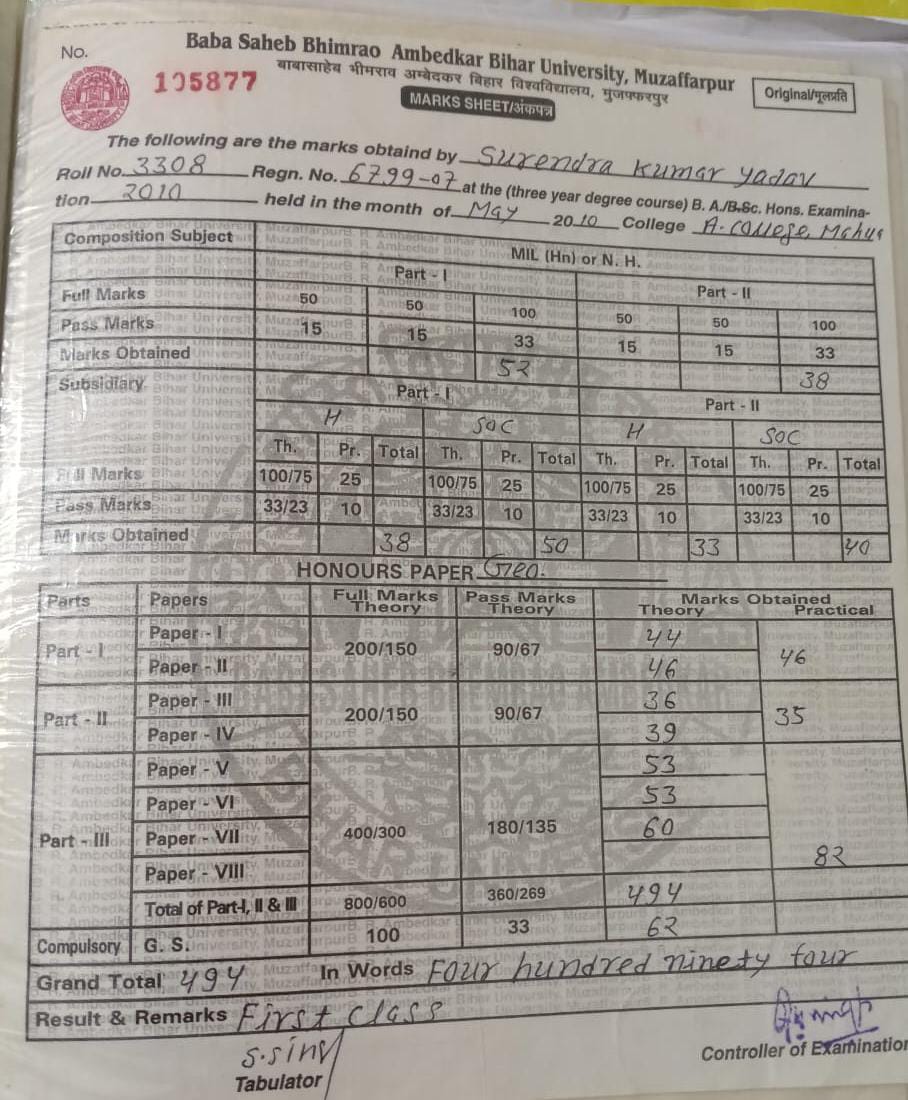 Baba Saheb Bhimrao Ambedkar Bihar University, Muzaffarpur
No.
बाबासाहेब भीमराव अम्बेदकर बिहार विश्वविद्यालय, मुजफ्फरपुर
105877
MARKS SHEET/अंकपत्र
Original/मूलप्रति
The following are the marks obtaind by Surendra Kumar Yadav
Roll No. 3308 Regn. No. 6799-07 at the (three year degree course) B. A./B.Sc. Hons. Examina-
tion 2010 held in the month of May 2010 College A. College, Mahua
Composition Subject MIL (Hn) or N. H.
Part - I Part - II
Full Marks 50 50 100 50 50 100
Pass Marks 15 15 33 15 15 33
Marks Obtained 52 38
Subsidiary Part - I Part - II
H SOC H SOC
Th. Pr. Total Th. Pr. Total Th. Pr. Total Th. Pr. Total
Full Marks 100/75 25 100/75 25 100/75 25 100/75 25
Pass Marks 33/23 10 33/23 10 33/23 10 33/23 10
Marks Obtained 38 50 33 40
HONOURS PAPER Geo.
Parts Papers Full Marks Theory Pass Marks Theory Marks Obtained Theory Practical
Part - I Paper - I 200/150 90/67 44 46
Paper - II 46
Part - II Paper - III 200/150 90/67 36 35
Paper - IV 39
Part - III Paper - V 400/300 180/135 53
Paper - VI 53
Paper - VII 60
Paper - VIII 82
Total of Part-I, II & III 800/600 360/269 494
Compulsory G. S. 100 33 62
Grand Total 494 In Words Four hundred ninety four
Result & Remarks First Class
S. Sinh
Tabulator
Controller of Examination